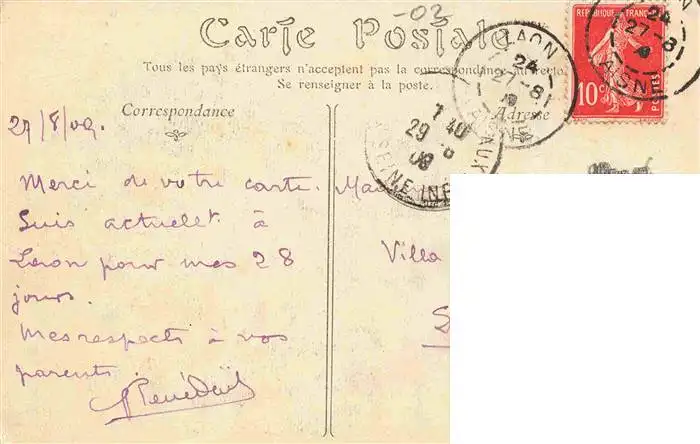 -03
Carte Postale
Tous les pays étrangers n'acceptent pas la correspondance au recto
Se renseigner à la poste.
Correspondance
Adresse
REPUBLIQUE FRANC
10c
POSTES
LAON
24
27-8
AISNE
LAON
24
27-8
AISNE
7 40
29-8
SEINE INF
27/8/09.
Merci de votre carte.
Suis actuellet à
Laon pour mes 28
jours.
Mes respects à vos
parents.
Villa